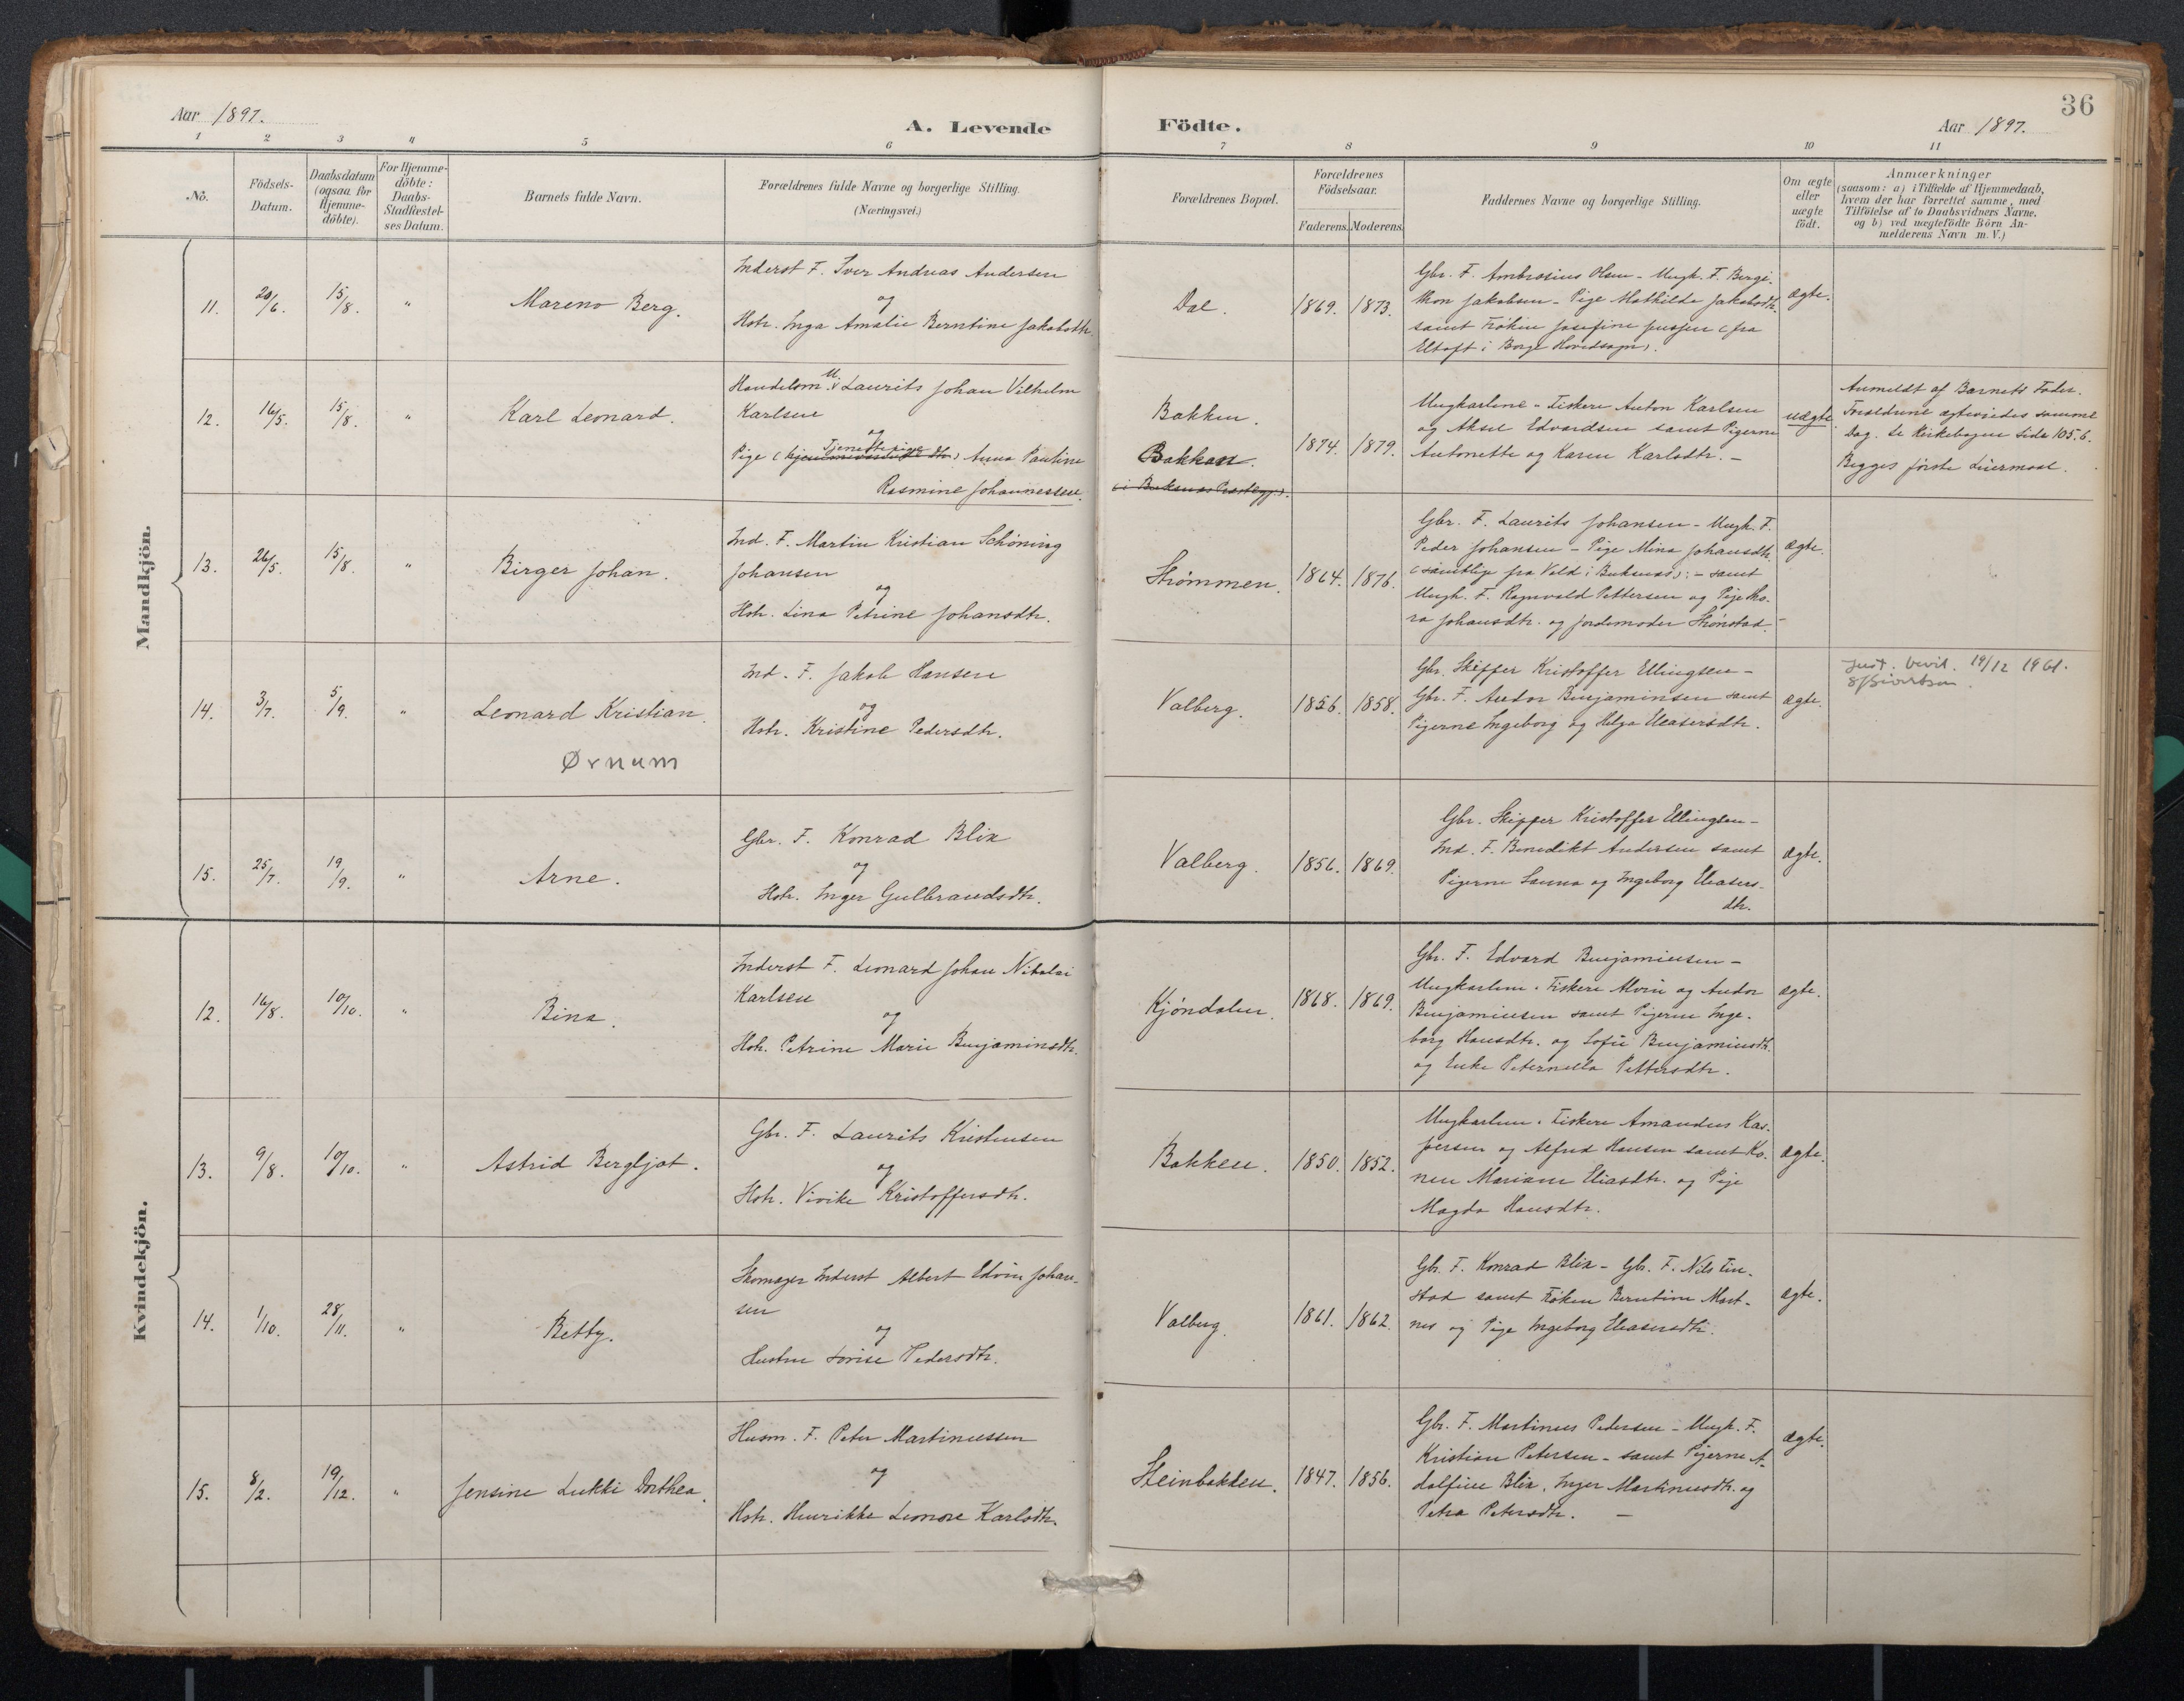 36
Aar 1897.
A. Levende Födte.
Aar 1897.
1 2 3 4 5 6 7 8 9 10 11
No.
Födsels-
Datum.
Daabsdatum
(ogsaa for
Hjemme-
döbte).
For Hjemme-
döbte:
Daabs-
Stadfæstel-
ses Datum.
Barnets fulde Navn.
Forældrenes fulde Navne og borgerlige Stilling.
(Næringsvei.)
Forældrenes Bopæl.
Forældrenes
Födselsaar.
Faderens. Moderens.
Faddernes Navne og borgerlige Stilling.
Om ægte
eller
uægte
födt.
Anmærkninger
(saasom: a) i Tilfælde af Hjemmedaab,
hvem der har forrettet samme, med
Tilföielse af to Daabsvidners Navne.
og b) ved uægtefödte Börn An-
melderens Navn m. V.)
Mandkjön.
11. 20/6. 15/8. " Mareno Berg.
Inderst F. Iver Andreas Andersen
og
Hstr. Inga Amalie Berntine Jakobsdtr.
Dal. 1869. 1873.
Gbr. F. Ambrosius Olsen - Ungk. F. Bergi-
thon Jakobsen - Pige Mathilde Jakobsdtr.
samt Frøken Josefine (fra
Eltoft i Borge Hovedsogn).
ægte.
12. 16/5. 15/8. " Karl Leonard.
Handelsm. Laurits Johan Vilhelm
Karlsen
og
Pige ( Tjenestepige ) Anna Pauline
Rasmine Johannessen.
Bakken.
Bakkan.
1874. 1879.
Ungkarlene - Fiskere Anton Karlsen
og Aksel Edvardsen samt Pigerne
Antonette og Karen Karlsdtr. -
uægte
Anmeldt af Barnets Fader.
Forældrene ægteviedes samme
Dag. Se Kirkebogen Side 105. 6.
Begges første Leiermaal.
13. 26/5. 15/8. " Birger Johan.
Ind. F. Martin Kristian Schöning
Johansen
og
Hstr. Lina Petrine Johansdtr.
Strømmen. 1864. 1876.
Gbr. F. Laurits Johansen - Ungk. F.
Peder Johansen - Pige Mina Johansdtr.
(samtlige fra Vold i Buksnæs): - samt
Ungk. F. Ragnvald Pettersen og Pige Tho-
ra Johansdtr. og Jordemoder Strønstad. -
ægte.
14. 3/7. 5/9. " Leonard Kristian.
Ørnum
Ind. F. Jakob Hansen
og
Hstr. Kristine Pedersdtr.
Valberg. 1856. 1858.
Gbr. Skipper Kristoffer Ellingsen -
Gbr. F. Andor Benjaminsen samt
Pigerne Ingeborg og Helga Eleasersdtr.
ægte.
Just. bevil. 19/12 1961.
15. 25/7. 19/9. " Arne.
Gbr. F. Konrad Blix
og
Hstr. Inger Gulbrandsdtr.
Valberg. 1856. 1869.
Gbr. Skipper Kristoffer Ellingsen -
Ind. F. Benedikt Andersen samt
Pigerne Sanna og Ingeborg Eleasers-
dtr.
ægte.
Kvindekjön.
12. 16/8. 10/10. " Bina.
Inderst F. Leonard Johan Nikolai
Karlsen
og
Hstr. Petrine Marie Benjaminsdtr.
Kjöndalen. 1868. 1869.
Gbr. F. Edvard Benjaminsen -
Ungkarlene. Fiskere Alvin og Andor
Benjaminsen samt Pigerne Inge-
borg Hansdtr. og Sofie Benjaminsdtr.
og Enke Peternella Pettersdtr.
ægte.
13. 9/8. 10/10. " Astrid Bergljot.
Gbr. F. Laurits Kristensen
og
Hstr. Vivike Kristoffersdtr.
Bakken. 1850. 1852.
Ungkarlene. Fiskere Amandus Kas-
persen og Alfred Hansen samt Ko-
nen Mariane Eliasdtr. og Pige
Magda Hansdtr.
ægte.
14. 1/10. 28/11. " Betty.
Skomager Inderst Albert Edvin Johan-
sen
og
Hustru Lovise Pedersdtr.
Valberg. 1861. 1862.
Gbr. F. Konrad Blix - Gbr. F. Nils Tin-
stad samt Frøken Berntine Mort-
nes og Pige Ingeborg Eleasersdtr.
ægte.
15. 8/2. 19/12. " Jensine Lukki Dorthea.
Husm. F. Peter Martinussen
og
Hstr. Henrikke Leonore Karlsdtr.
Steinbakken. 1847. 1856.
Gbr. F. Martinus Pedersen - Ungk. F.
Kristian Petersen - samt Pigerne A-
dolfine Blix, Inger Martinusdtr. og
Petra Petersdtr. -
ægte.